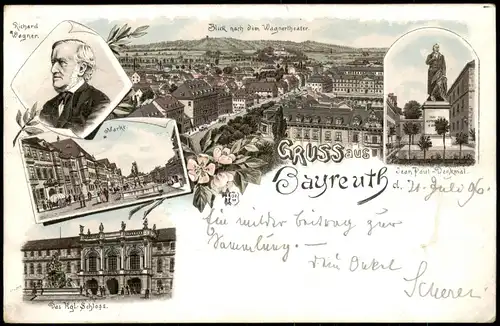 Richard
Wagner.
Blick nach dem Wagnertheater.
Markt.
Jean Paul-Denkmal.
GRUSS aus
Bayreuth d. 21. Juli 96.
Ein milder Beitrag zur
Sammlung. —
Dein Onkel
Scherer
Das Kgl. Schloss.